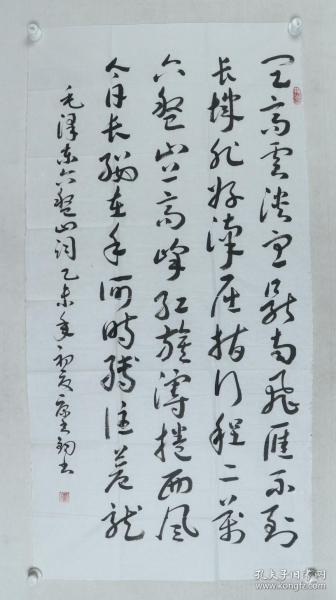 天高雲淡望斷南飛雁不到
長城非好漢屈指行程二萬
六盤山上高峰紅旗漫捲西風
今日長纓在手何時縛住蒼龍
毛澤東六盤山詞乙未年初夏書
孔夫子旧书网